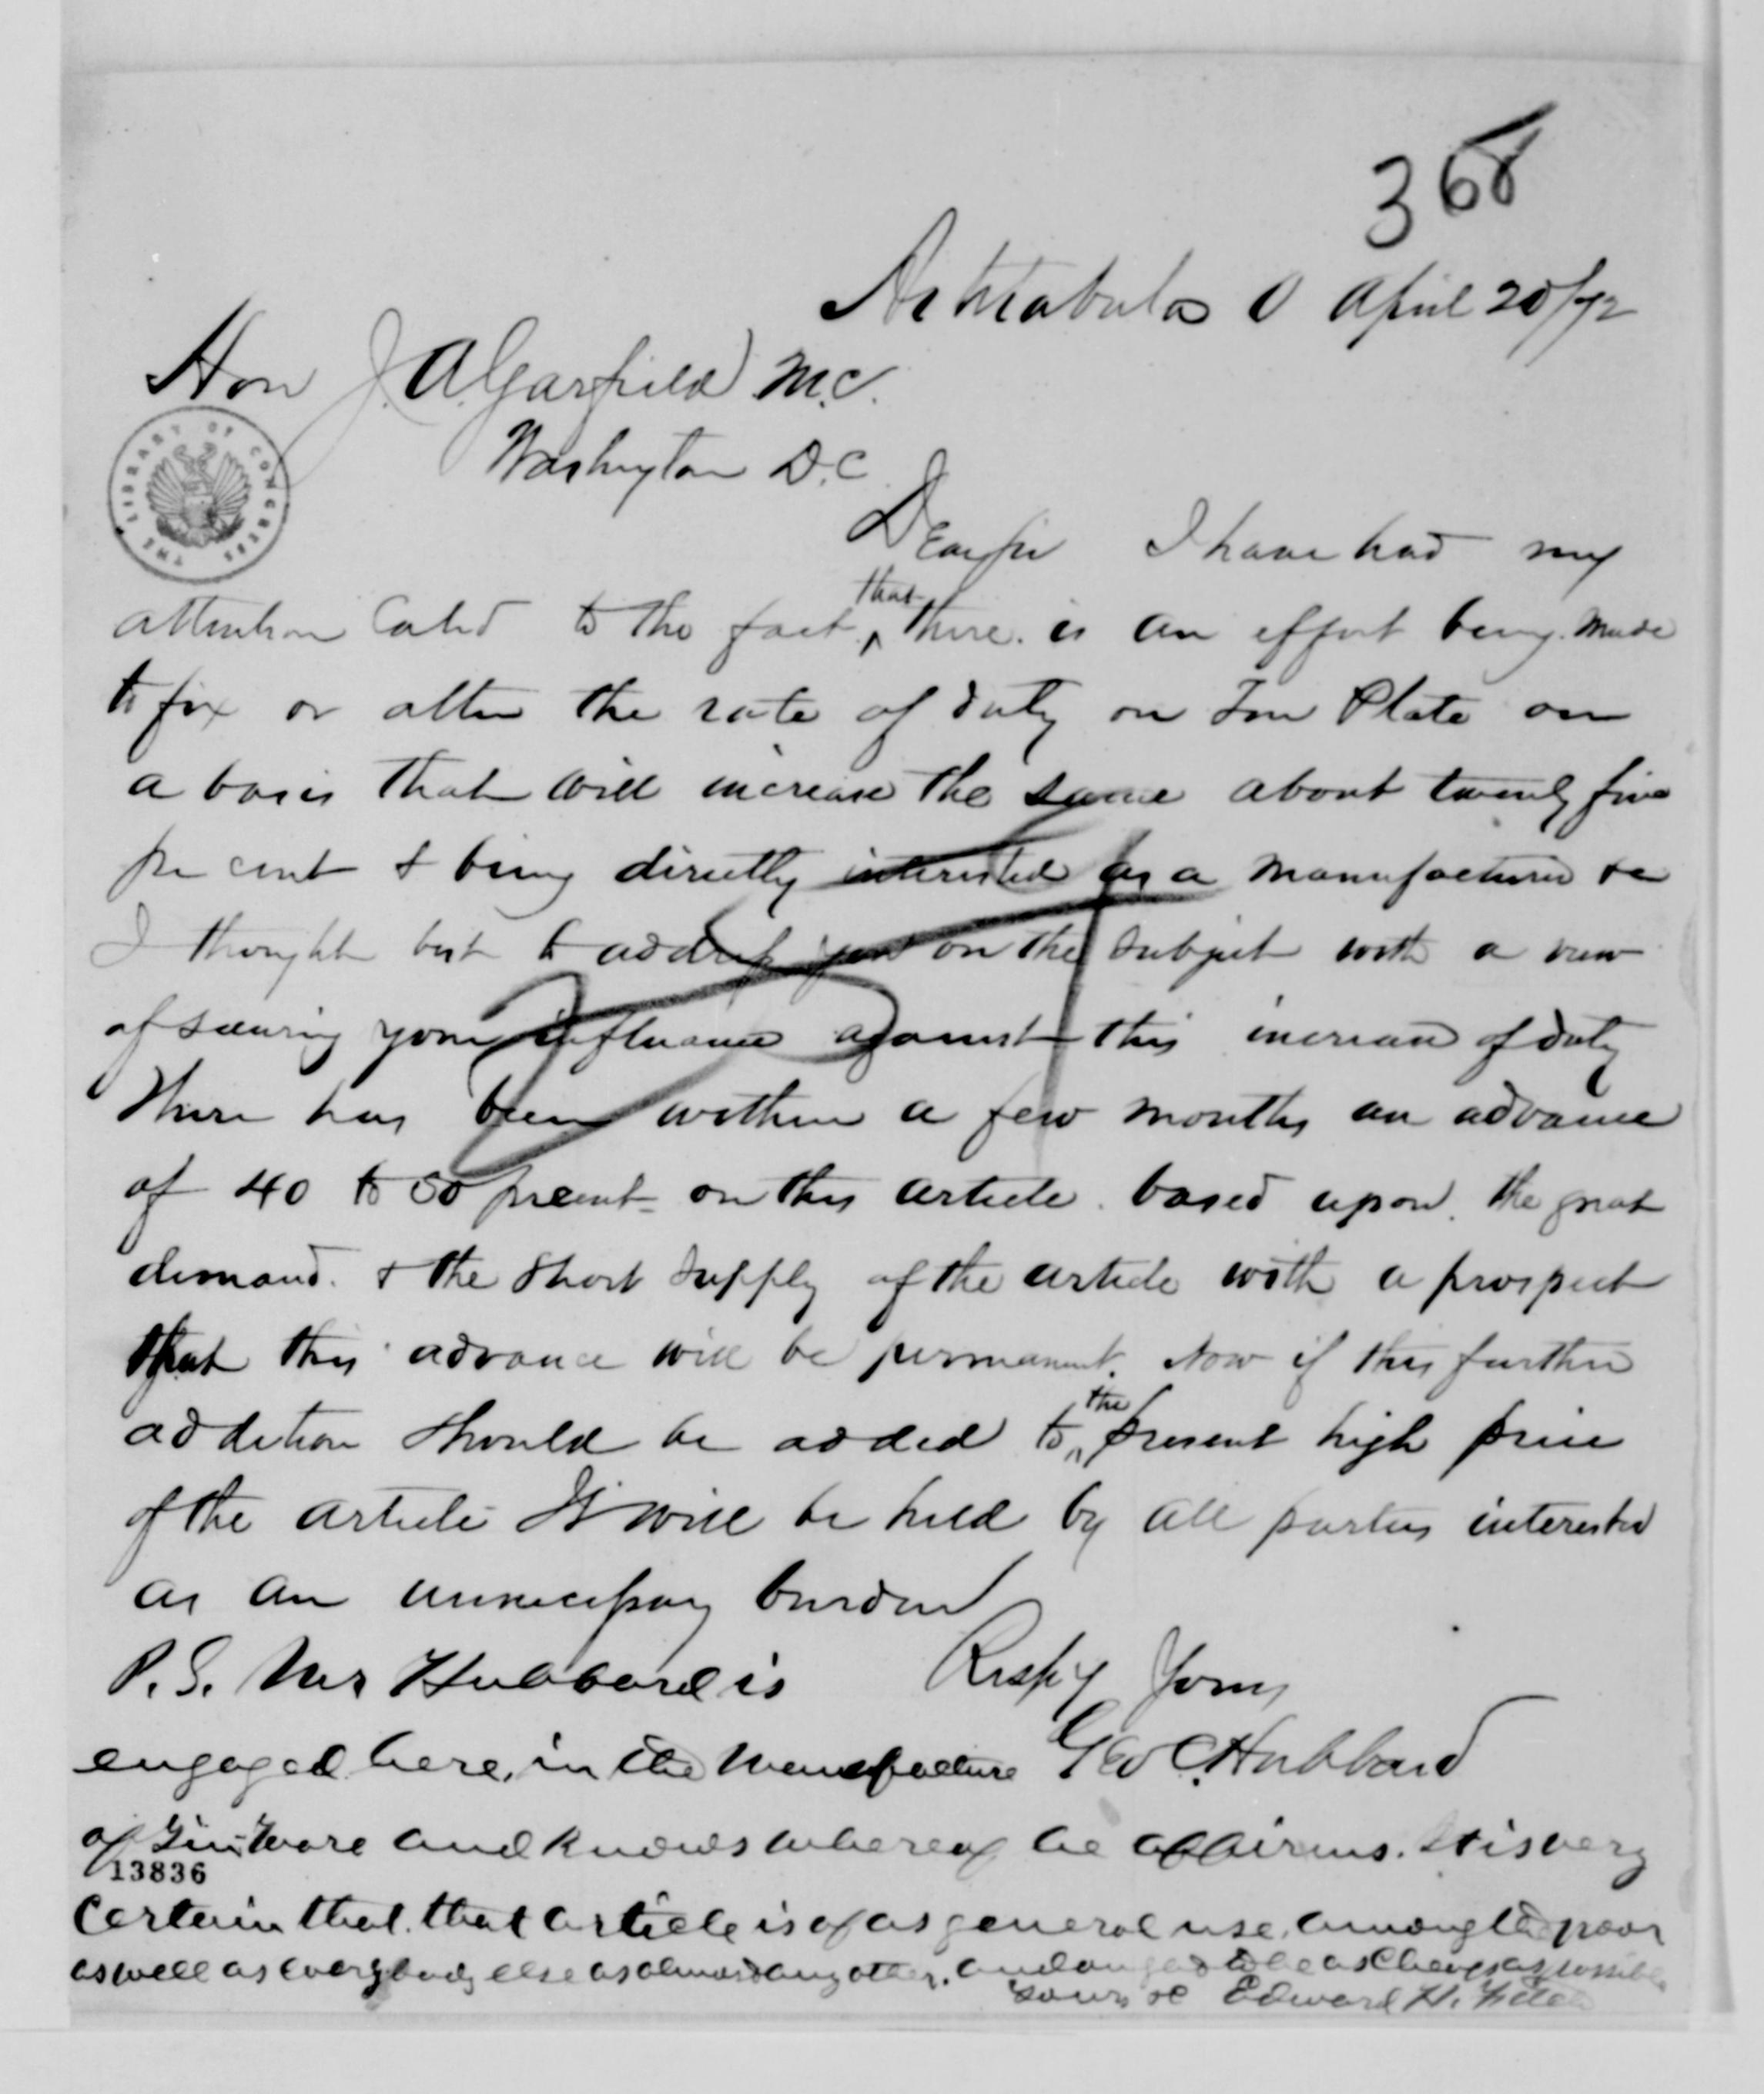 368
Ashtabula O April 20/72
Hon J. A. Garfield M.C.
Washington D.C.
THE LIBRARY OF CONGRESS
Dear Sir I have had my
attention Called to the fact that there is an effort being made
to fix or alter the rate of duty on Tin Plate on
a basis that will increase the same about twenty five
per cent & being directly interested as a manufacturer &c
I thought best to address you on the subject with a view
of securing your influence against this increase of duty
There has been within a few months an advance
of 40 to 50 prcent on this article based upon the great
demand & the short supply of the article with a prospect
that this advance will be permanent. Now if this further
addition should be added to the present high price
of the article It will be held by all parties interested
as an unnecessary burden
Respy Yours
Geo C. Hubbard
P.S. Mr Hubbard is
engaged here, in the manufacture
of Tin-Ware and knows whereof he affirms. It is very
13836
certain that that article is of as general use, among the poor
as well as everybody else as almost any other, and ought to be as cheap as possible
Yours &c Edward H. Fitch